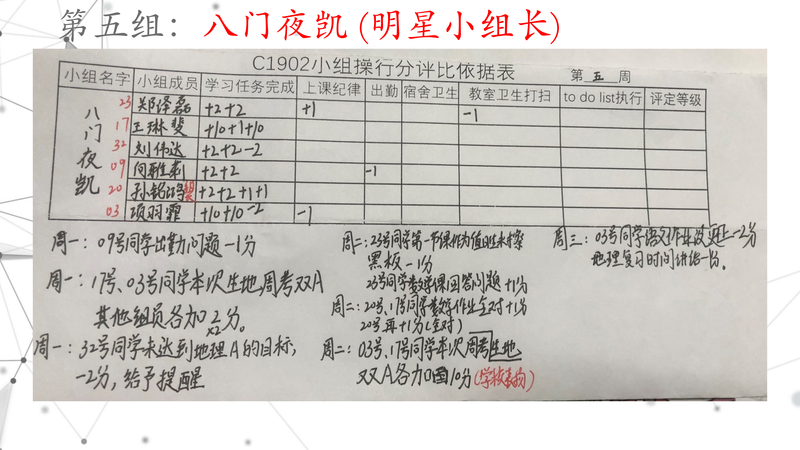 第五组：八门夜凯 (明星小组长)
C1902小组操行分评比依据表
第 五 周
小组名字 小组成员 学习任务完成 上课纪律 出勤 宿舍卫生 教室卫生打扫 to do list执行 评定等级
八门夜凯
23 郑泽磊 +2+2 +1 -1
17 王琳斐 +10+1+10
32 刘伟达 +2+2-2
09 +2+2 -1
20 孙铭鸿 组长 +2+2+1+1
03 项羽霏 +10+10-2 -1
周一：09号同学出勤问题-1分
周一：17号、03号同学本次生地周考双A
其他组员各加2分。
×2
周一：32号同学未达到地理A的目标，
-2分，给予提醒
周二：23号同学第一节课作为值日生未擦
黑板-1分
23号同学数学课回答问题+1分
周二：20号、17号同学数学作业全对+1分
20号再+1分(全对)
周二：03号、17号同学本次周考生地
双A各加10分(学校表扬)
周三：03号同学语文作业没交上-2分
地理复习时间讲话-1分。